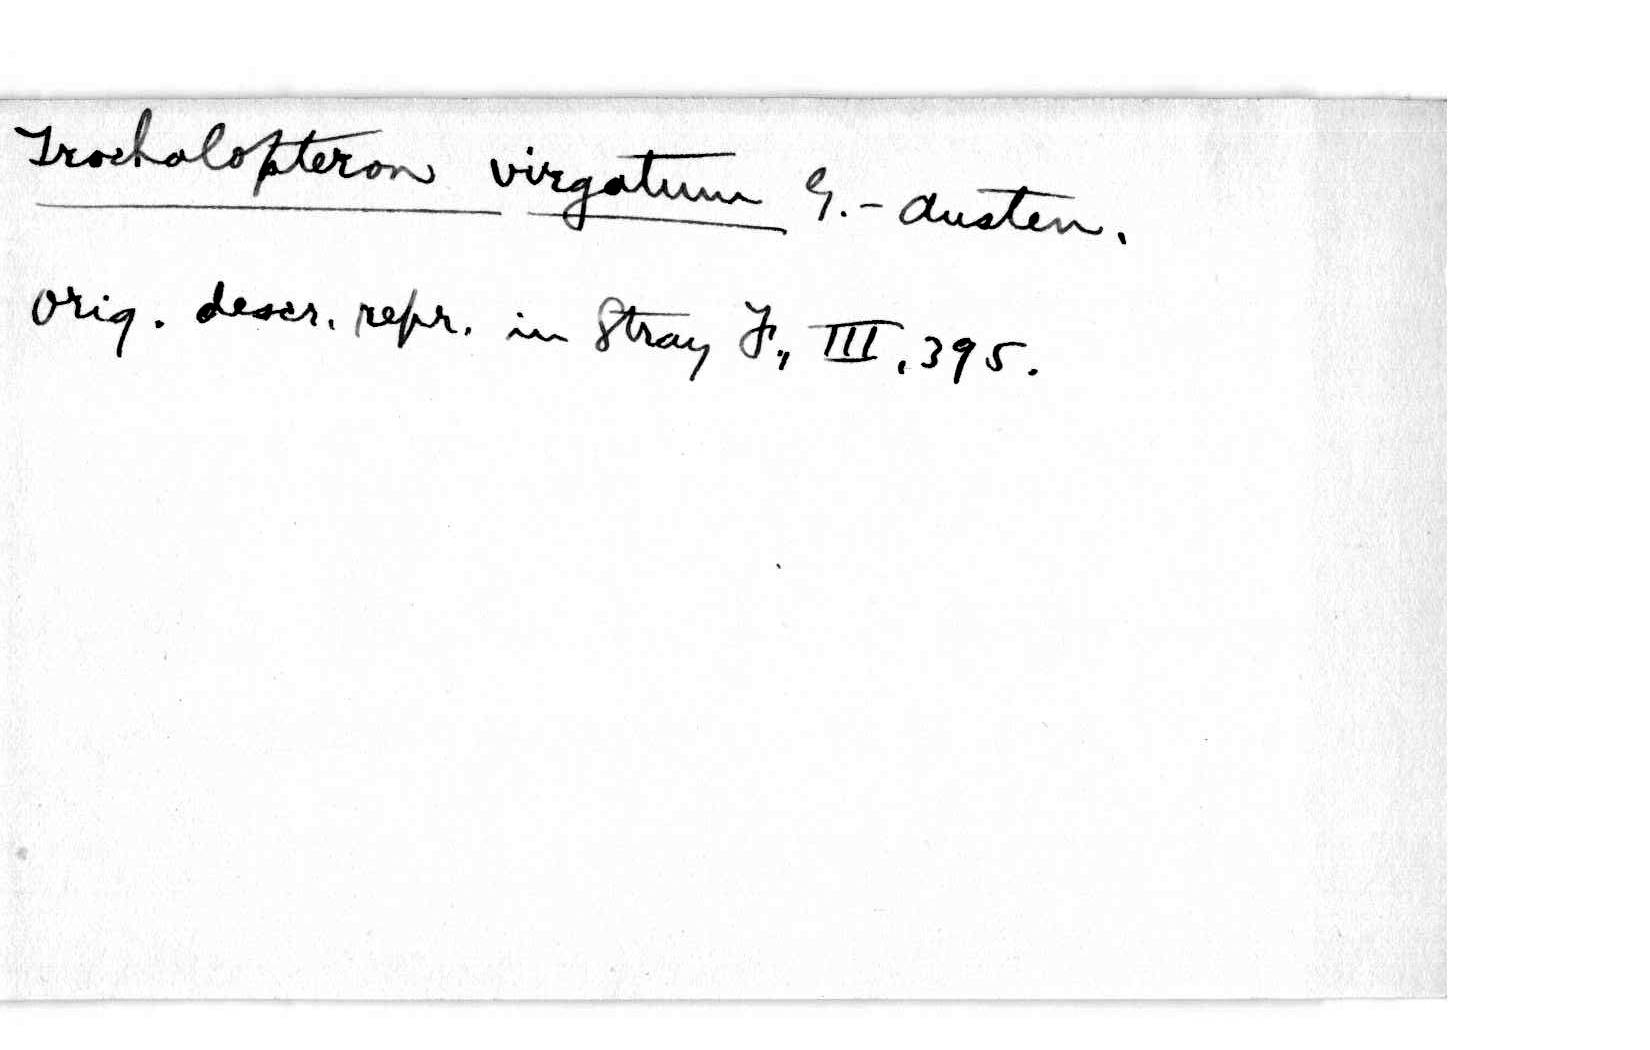 Trochalopteron virgatum G.-Austen.
Orig. descr. repr. in Stray F., III, 395.